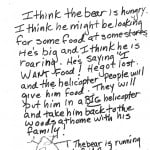 I think the bear is hungry.
I think he might be looking
for some food at some
He's big and I think he is
roaring. He's saying "I
WANT food! He got lost
and the helicopter people will
give him food. They will
put him in a BIG helicopter
and take him back to the
woods at home with his
family!
The bear is running